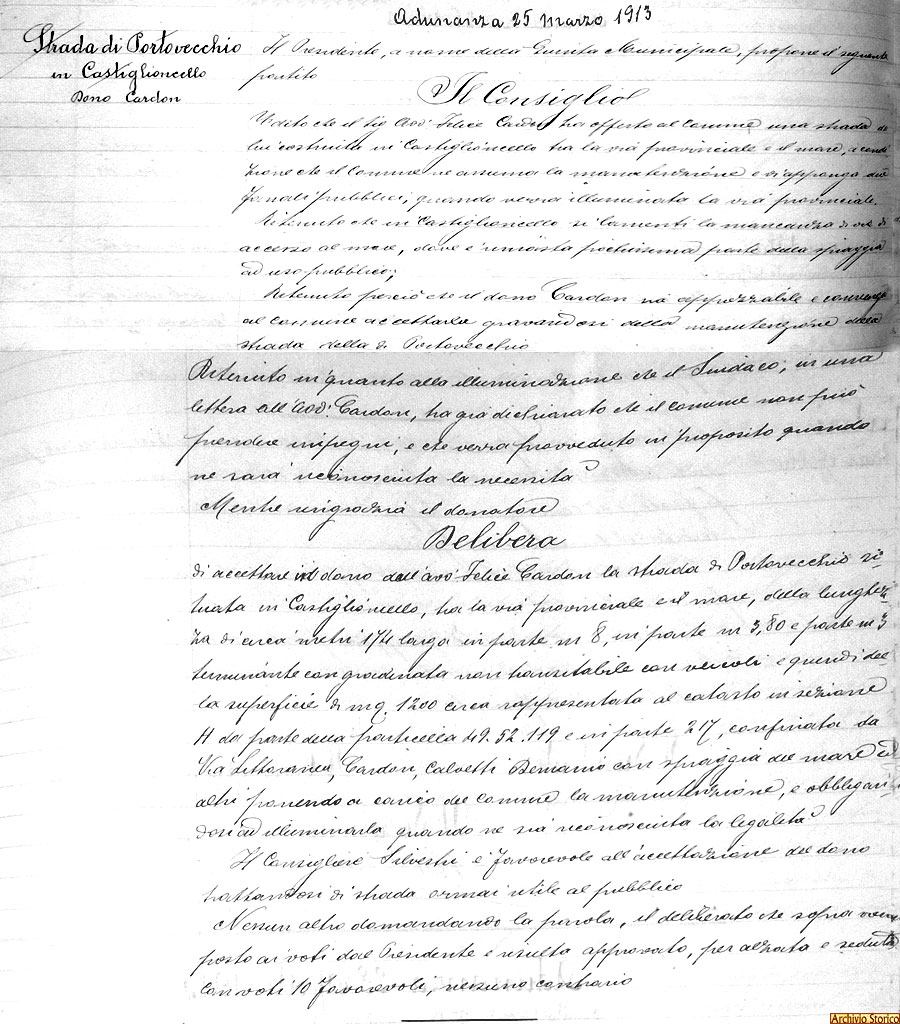 Adunanza 25 Marzo 1913
Strada di Portovecchio
in Castiglioncello
Dono Cardon
Il Presidente, a nome della Giunta Municipale, propone il seguente
partito
Il Consiglio
Udito che il sig. Avv. Felice Cardon ha offerto al Comune una strada da
lui costruita in Castiglioncello tra la via provinciale e il mare, a condi-
zione che il Comune ne assuma la manutenzione e vi apponga due
fanali pubblici, quando verrà illuminata la via provinciale.
Ritenuto che in Castiglioncello si lamenti la mancanza di vie di
accesso al mare, dove è rimasta pochissima parte della spiaggia
ad uso pubblico;
Ritenuto perciò che il dono Cardon sia apprezzabile e convenga
al comune accettarla gravandosi della manutenzione della
strada detta di Portovecchio
Ritenuto in quanto alla illuminazione che il Sindaco, in una
lettera all'Avv. Cardon, ha già dichiarato che il comune non può
prendere impegni, e che verrà provveduto in proposito quando
ne sarà riconosciuta la necessità
Mentre ringrazia il donatore
Delibera
di accettare in dono dall'avv. Felice Cardon la strada di Portovecchio si-
tuata in Castiglioncello, tra la via provinciale e il mare, della lunghez-
za di circa metri 174 larga in parte m 8, in parte m 3,80 e parte m 3
terminante con gradinata non transitabile con veicoli e quindi del
la superficie di mq. 1200 circa rappresentata al catasto in sezione
H da parte della particella 49.52.119 e in parte 217, confinata da
Via Littoranea, Cardon, Calvetti Demanio con spiaggia del mare ed
altri ponendo a carico del comune la manutenzione, e obbligan-
dosi ad illuminarla quando ne sia riconosciuta la legalità
Il Consigliere Silvestri è favorevole all'accettazione del dono
trattandosi di strada ormai utile al pubblico
Nessun altro domandando la parola, il deliberato che sopra viene
posto ai voti dal Presidente e risulta approvato, per alzata e seduta
con voti 10 favorevoli, nessuno contrario
Archivio Storico